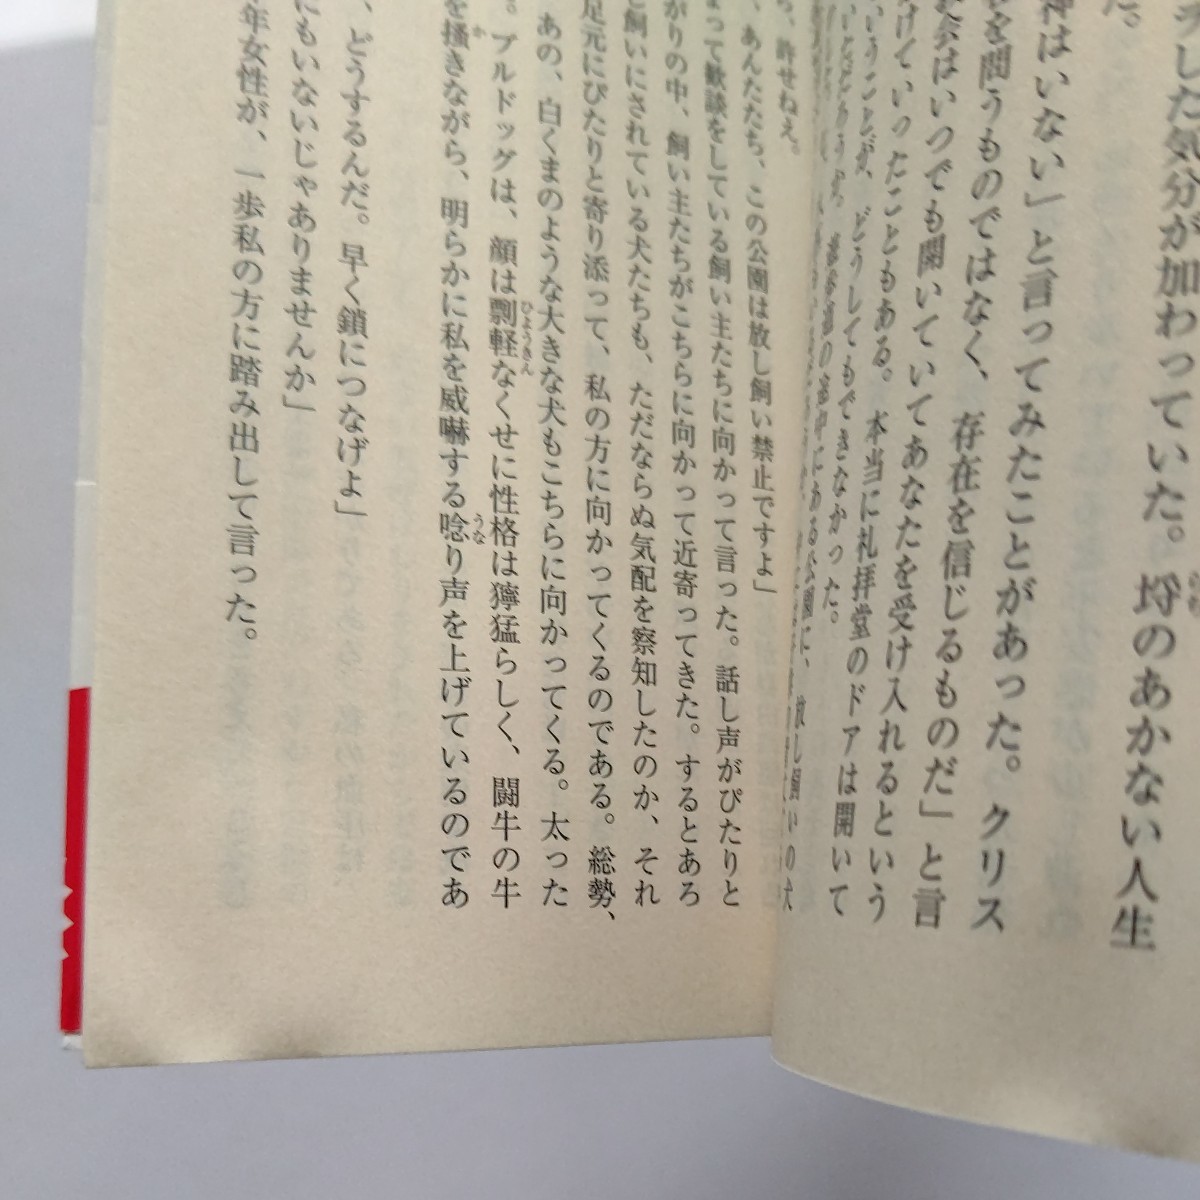 した気分が加わっていた。埒のあかない人生
た。
神はいない」と言ってみたことがあった。クリス
を問うものではなく、存在を信じるものだ」と言
会はいつでも開いていてあなたを受け入れるという
けていったこともある。本当に礼拝堂のドアは開いて
いうことが、どうしてもできなかった。
放し飼いの犬
ら、許せねえ。
、あんたたち、この公園は放し飼い禁止ですよ」
まって歓談をしている飼い主たちに向かって言った。話し声がぴたりと
がりの中、飼い主たちがこちらに向かって近寄ってきた。するとあろ
し飼いにされている犬たちも、ただならぬ気配を察知したのか、それ
足元にぴたりと寄り添って、私の方に向かってくるのである。総勢、
あの、白くまのような大きな犬もこちらに向かってくる。太った
。ブルドッグは、顔は剽軽なくせに性格は獰猛らしく、闘牛の牛
を掻きながら、明らかに私を威嚇する唸り声を上げているのであ
、どうするんだ。早く鎖につなげよ」
にもいないじゃありませんか」
年女性が、一歩私の方に踏み出して言った。